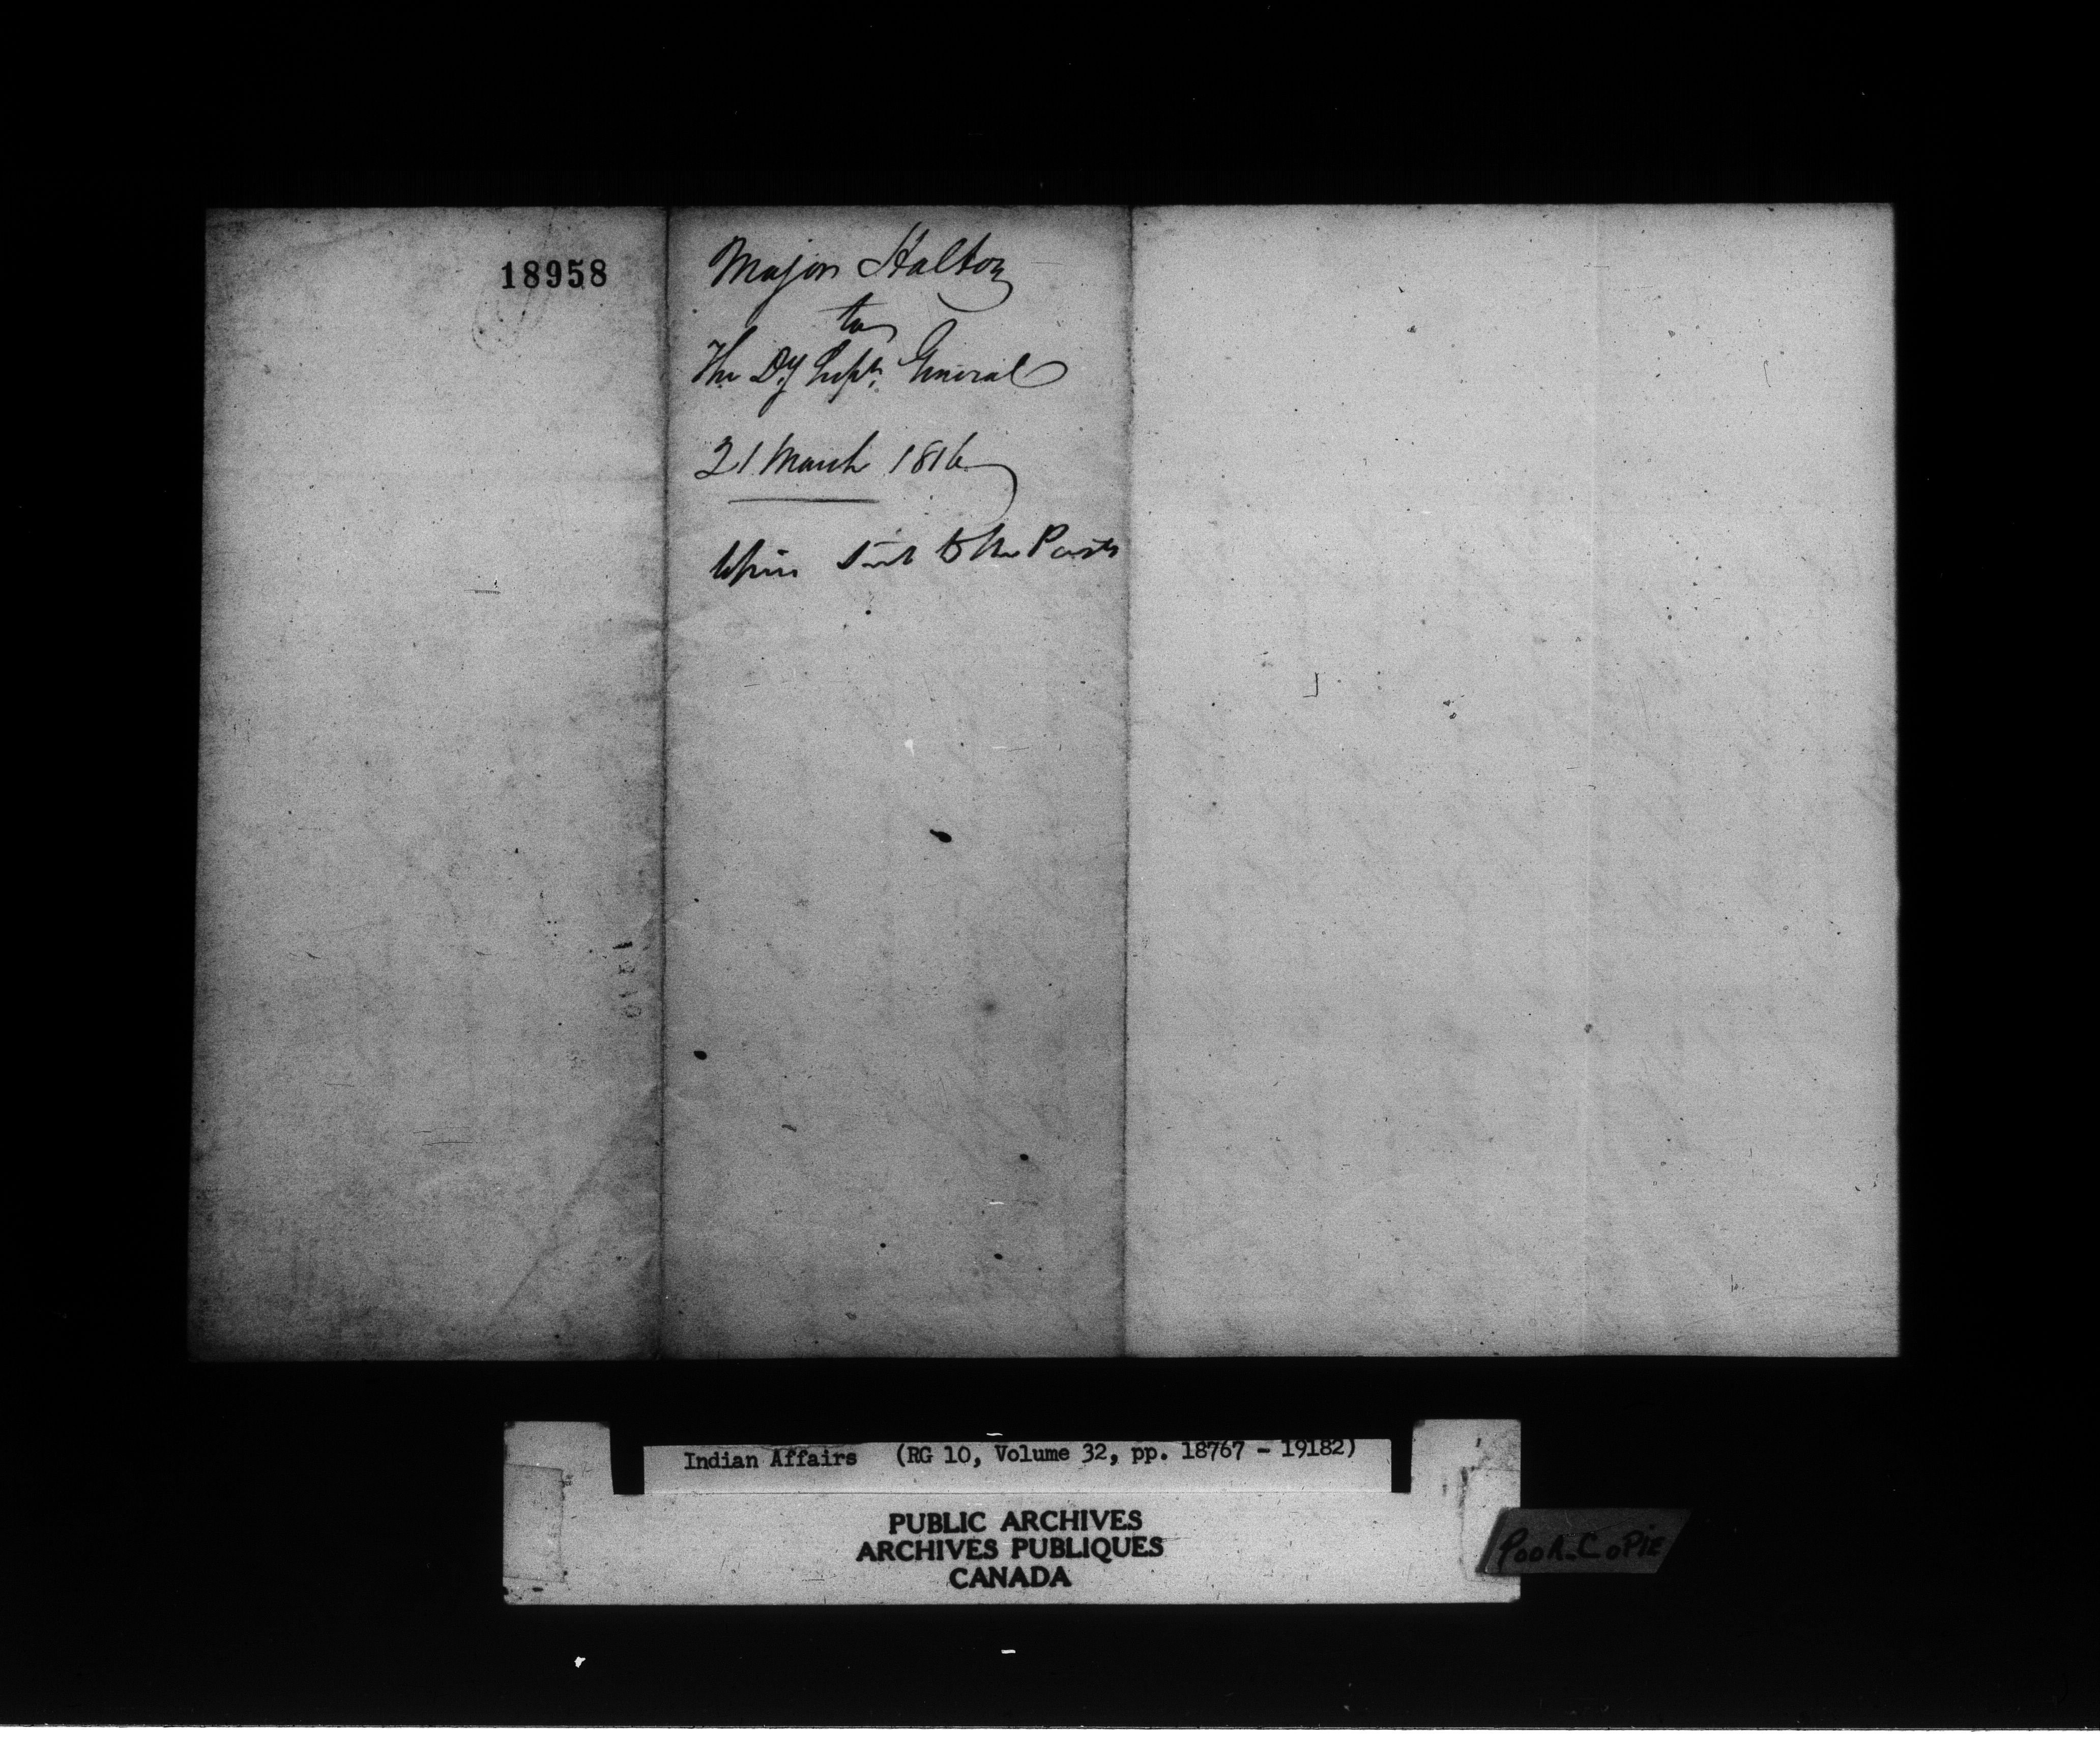 18958
Major Halton
to
The Dy Supt. General
21 March 1816
Copies sent to the Posts
Indian Affairs (RG 10, Volume 32, pp. 18767 - 19182)
PUBLIC ARCHIVES
ARCHIVES PUBLIQUES
CANADA
POOR COPIE